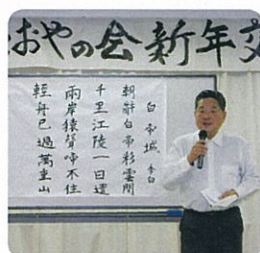 おやの会新年交
白帝城 李白
朝辞白帝彩雲間
千里江陵一日還
両岸猿聲啼不住
輕舟已過萬重山